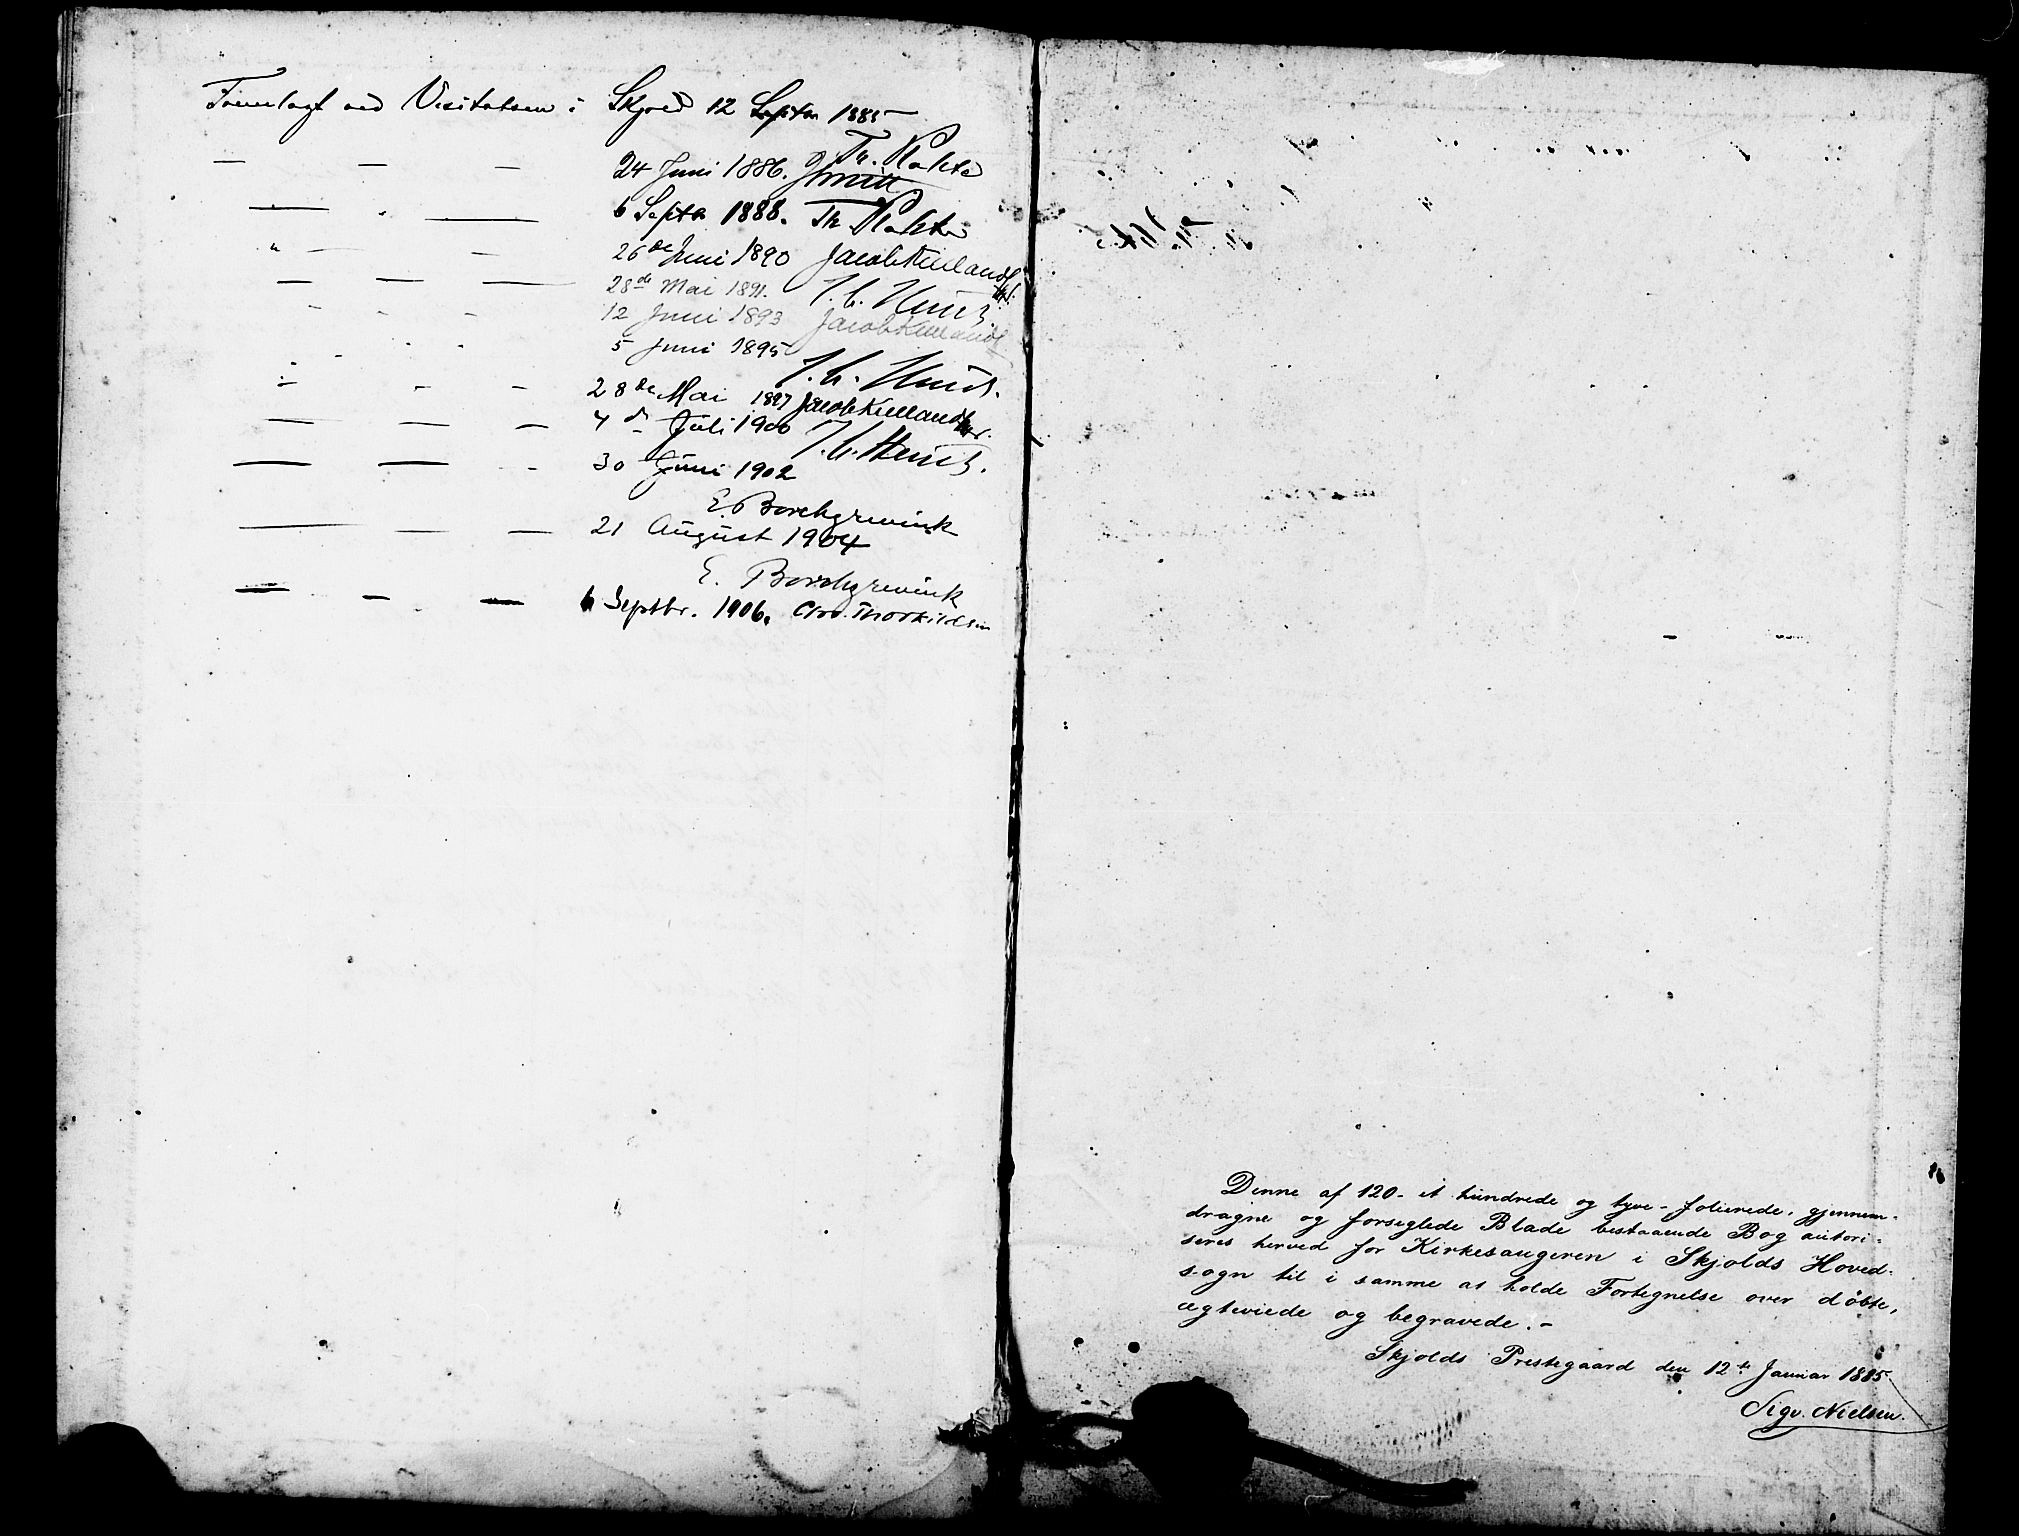 Fremlagt ved Visitatsen i Skjold 12 Septbr 1885
— — — 24 Juni 1886.
— " — 6 Septbr 1888.
" — — 26de Juni 1890 Jacob Kielland
— — — 28de Mai 1891.
- - - 12 Juni 1893 Jacob Kielland
- - - 5 Juni 1895
- - - 28de Mai 1897 Jacob Kielland
— — — 4de Juli 1900
— — - 30 Juni 1902
E. Borchgrevink
— — — 21 August 1904
E. Borchgrevink
— — — 6 Septbr. 1906. Chr. Thorkildsen
Denne af 120 - et hundrede og tyve - folierede, gjennem-
dragne og forseglede Blade bestaaende Bog autori-
seres herved for Kirkesangeren i Skjolds Hoved-
sogn til i samme at holde Fortegnelse over døbte,
ægteviede og begravede. -
Skjolds Prestegaard den 12te Januar 1885
Sigv. Nielsen.